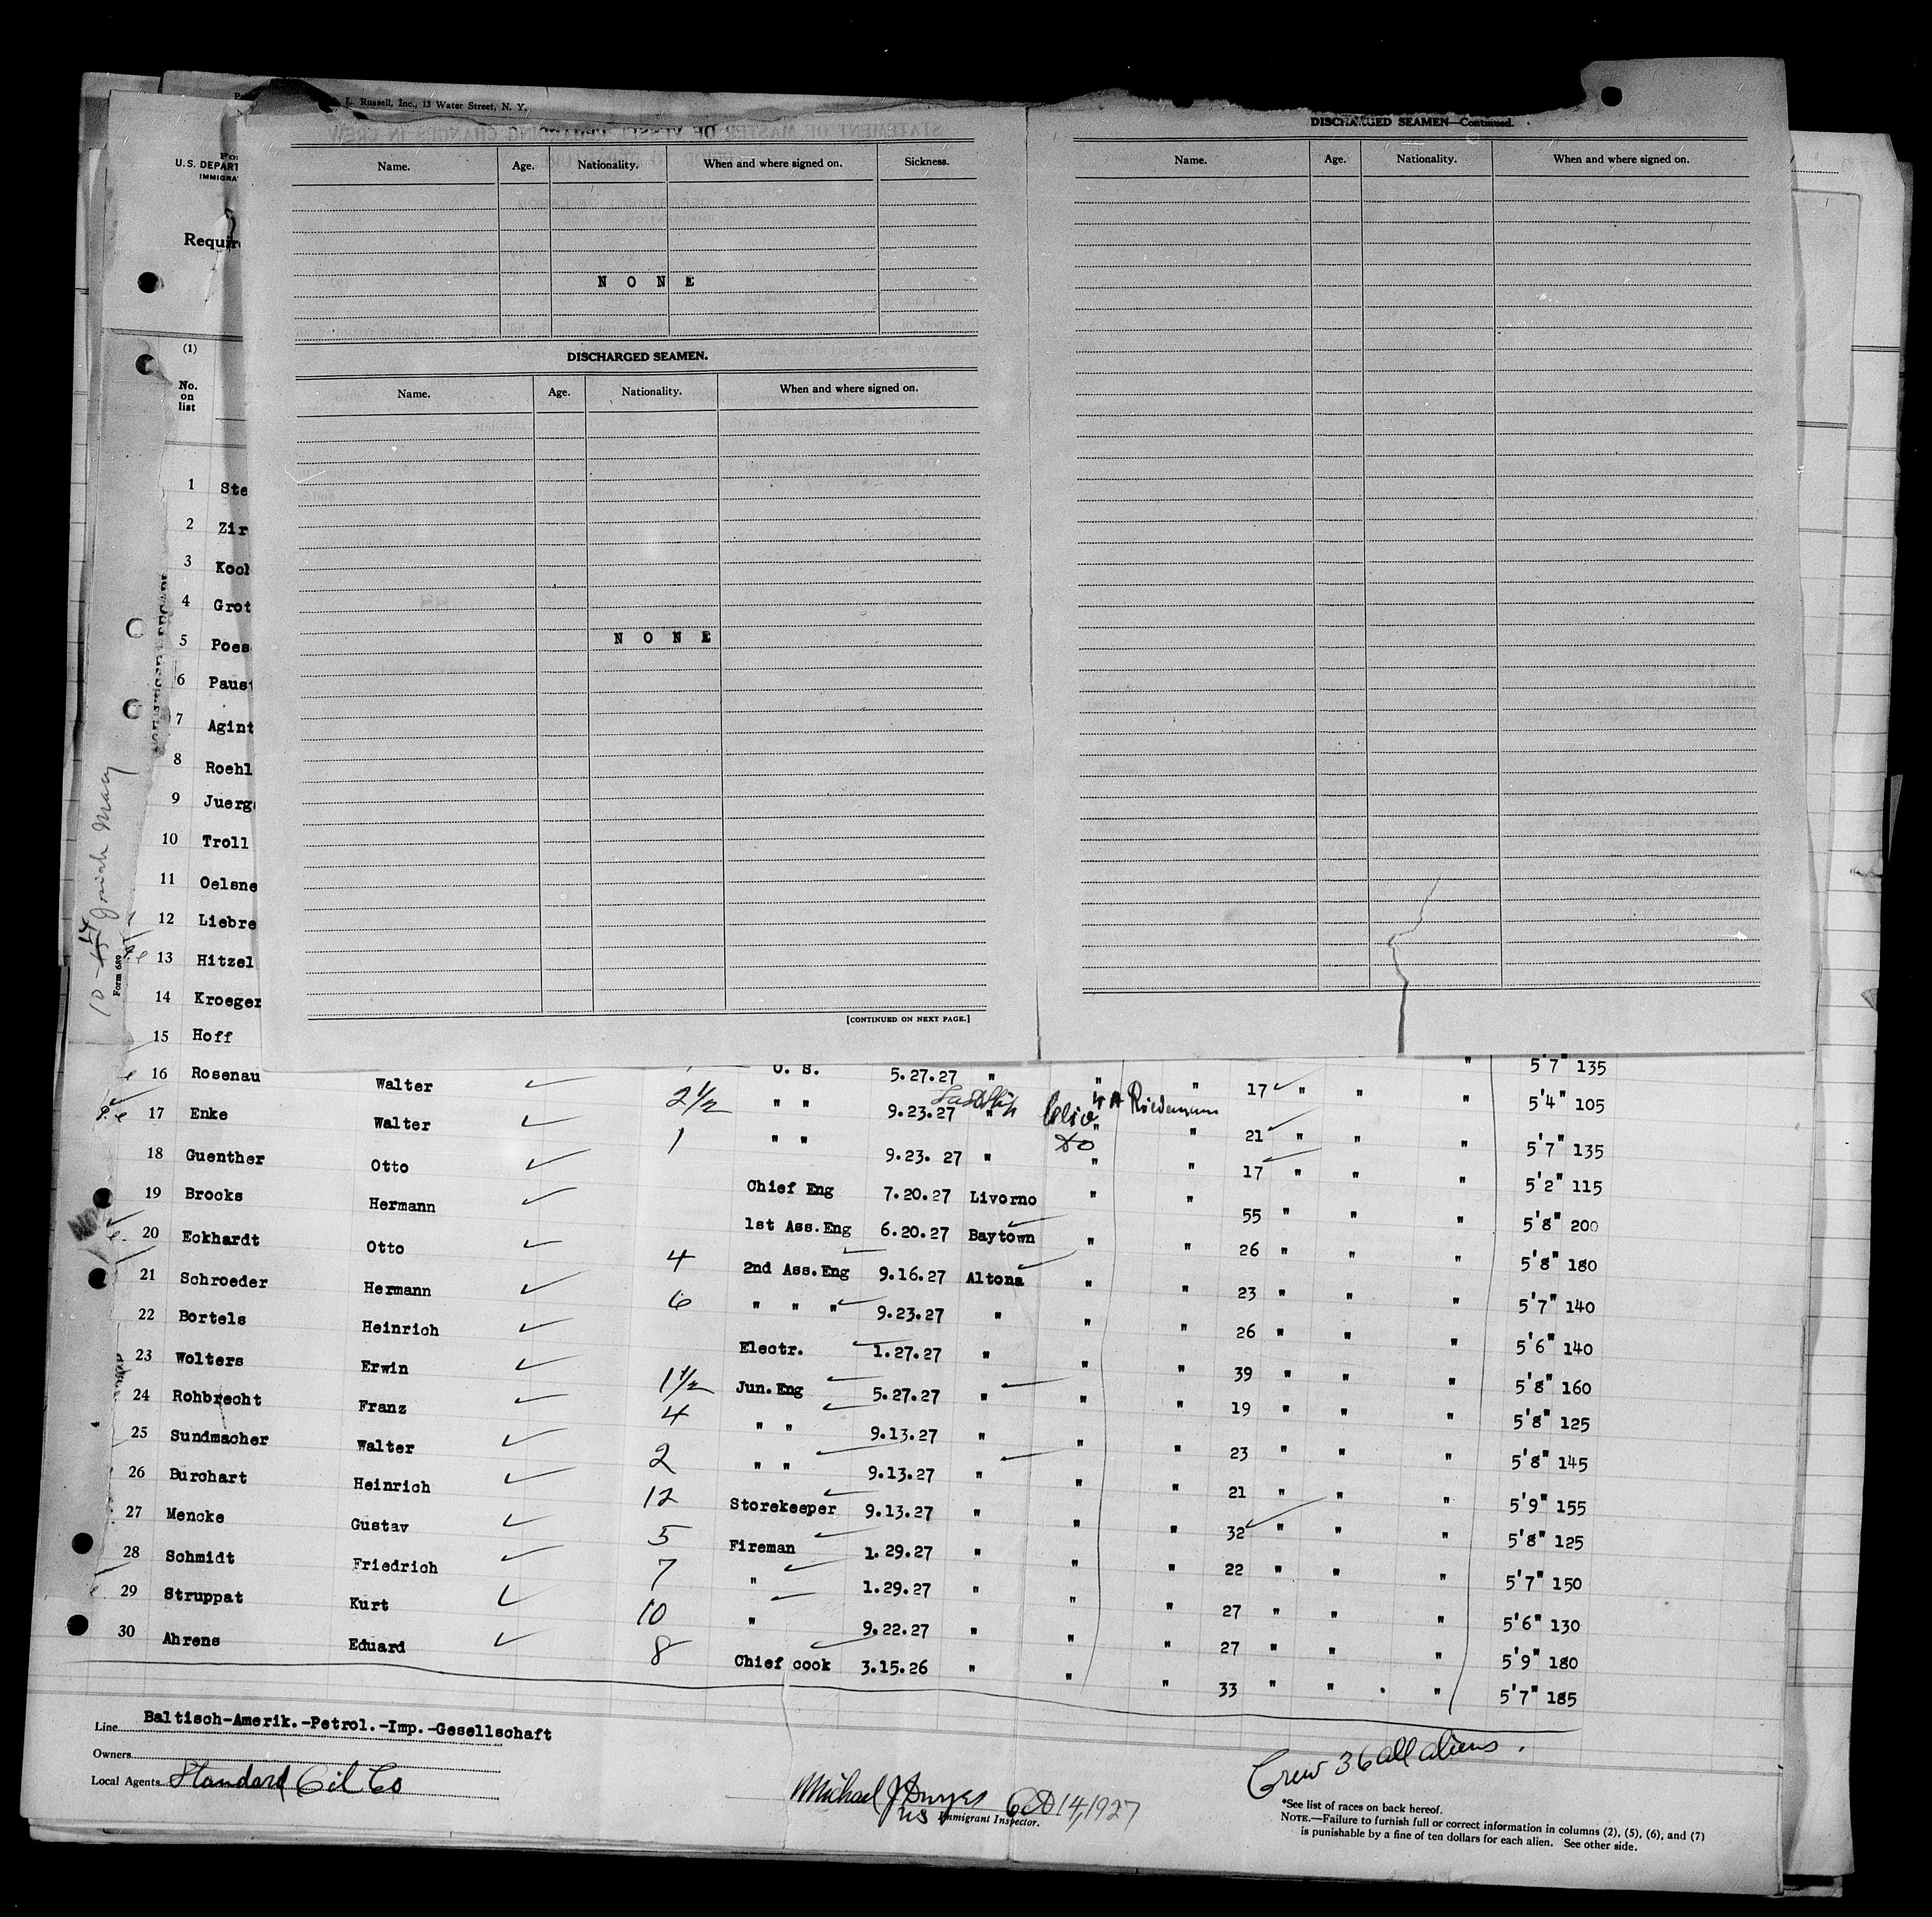 L. Russell, Inc., 13 Water Street, N. Y.
U.S. DEPART
IMMIGRA
Requir
(1)
No. on list
Name. Age. Nationality. When and where signed on. Sickness.
N O N E
DISCHARGED SEAMEN.
Name. Age. Nationality. When and where signed on.
N O N E
[CONTINUED ON NEXT PAGE.]
DISCHARGED SEAMEN—Continued.
Name. Age. Nationality. When and where signed on.
10-14 Josiah Macy
Form 689
1 Ste
2 Zir
3 Kool
4 Grot
5 Poes
6 Paus
7 Agint
8 Roehl
9 Juerg
10 Troll
11 Oelsne
12 Liebre
13 Hitzel
14 Kroeger
15 Hoff " 5'7" 135
16 Rosenau Walter ✓ O. S. 5.27.27 " " " 17 ✓ " " " 5'4" 105
17 Enke Walter ✓ 2 1/2 " " 9.23.27 " " Riedemann 21 " " " 5'7" 135
18 Guenther Otto ✓ 1 " " 9.23.27 " do " " 17 " " " 5'2" 115
19 Brooks Hermann ✓ Chief Eng 7.20.27 Livorno " " 55 " " " 5'8" 200
20 Eckhardt Otto ✓ 1st Ass.Eng 6.20.27 Baytown " " 26 " " " 5'8" 180
21 Schroeder Hermann ✓ 4 2nd Ass.Eng 9.16.27 Altona " " 23 " " " 5'7" 140
22 Bortels Heinrich ✓ 6 " " " 9.23.27 " " " 26 " " " 5'6" 140
23 Wolters Erwin ✓ Electr. 1.27.27 " " " 39 " " " 5'8" 160
24 Rohbrecht Franz ✓ 1 1/2 Jun.Eng 5.27.27 " " " 19 " " " 5'8" 125
25 Sundmacher Walter ✓ 4 " " 9.13.27 " " " 23 " " " 5'8" 145
26 Burchart Heinrich ✓ 2 " " 9.13.27 " " " 21 " " " 5'9" 155
27 Mencke Gustav ✓ 12 Storekeeper 9.13.27 " " " 32 " " " 5'8" 125
28 Schmidt Friedrich ✓ 5 Fireman 1.29.27 " " " 22 " " " 5'7" 150
29 Struppat Kurt ✓ 7 " 1.29.27 " " " 27 " " " 5'6" 130
10 " 9.22.27 " " " 27 " " " 5'9" 180
30 Ahrens Eduard ✓ 8 Chief cook 3.15.26 " " " 33 " " " 5'7" 185
Line Baltisch-Amerik.-Petrol.-Imp.-Gesellschaft
Owners
Local Agents Standard Oil Co
Michael J Dwyer Oct 14, 1927
US Immigrant Inspector.
Crew 36 all aliens.
*See list of races on back hereof.
NOTE.—Failure to furnish full or correct information in columns (2), (5), (6), and (7)
is punishable by a fine of ten dollars for each alien. See other side.